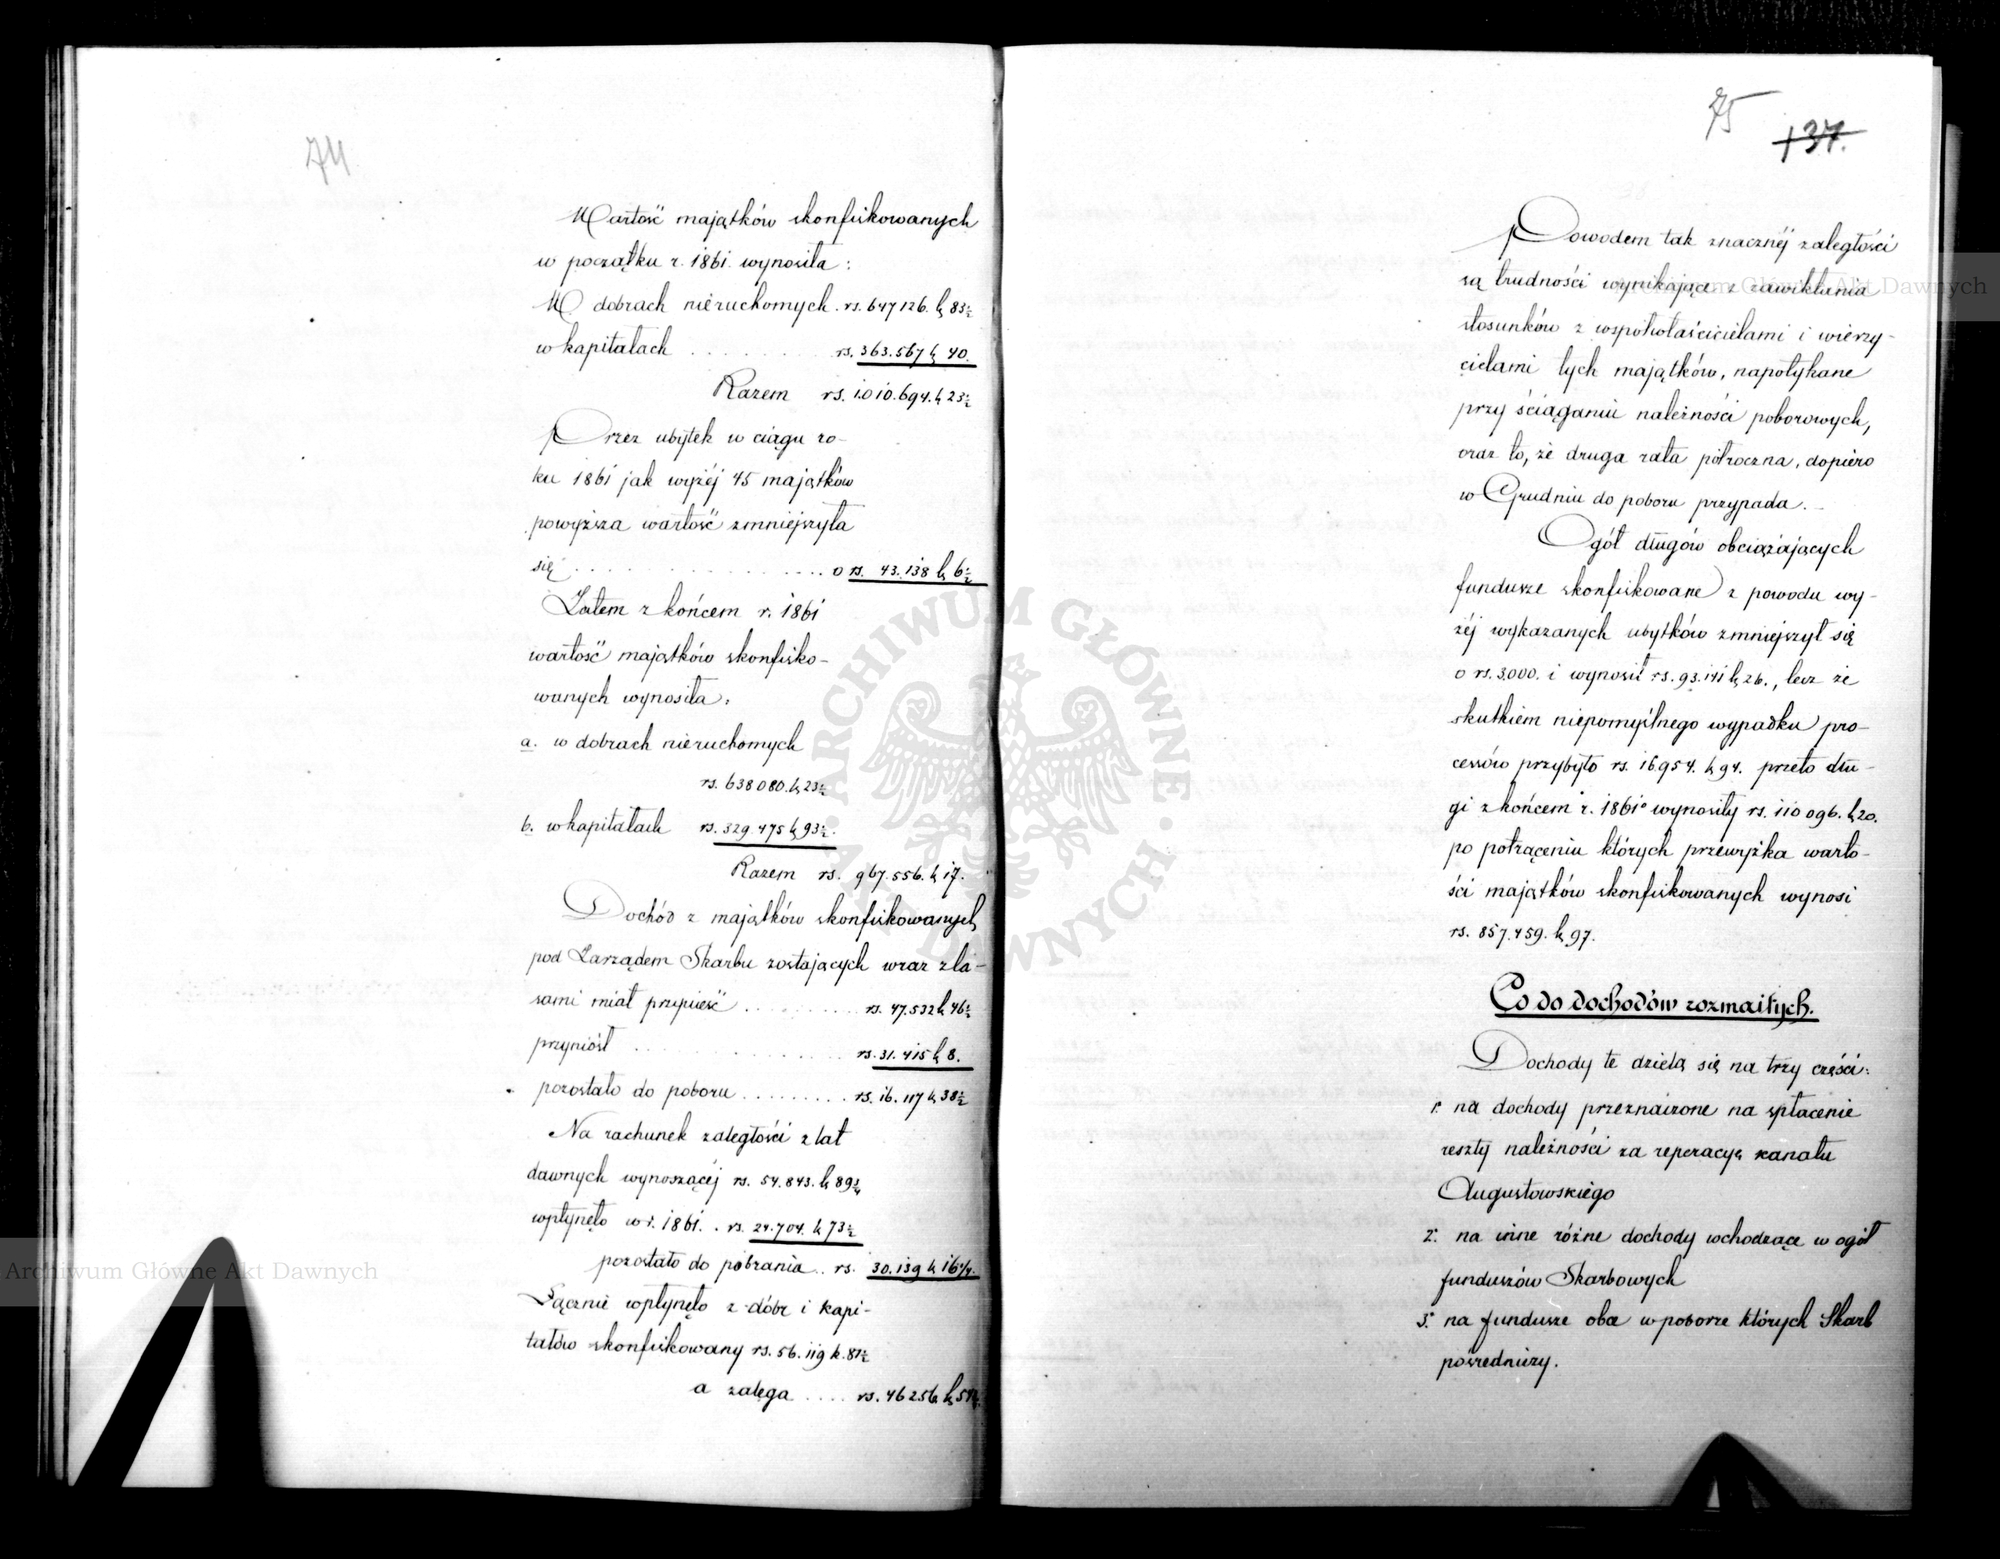 74
Wartość majątków skonfiskowanych
w początku r. 1861 wynosiła:
W dobrach nieruchomych . rs. 647126. k 83½
w kapitałach . . . . . . . . . rs. 363.567 k 40.
Razem rs. 1.010.694. k 23½
Przez ubytek w ciągu ro-
ku 1861 jak wyżéj 45 majątków
powyższa wartość zmniejszyła
się . . . . . . . . . . . . . . . . o rs. 43.138 k 6½
Zatem z końcem r. 1861
wartość majątków skonfisko-
wanych wynosiła:
a. w dobrach nieruchomych
rs. 638080. k 23½
b. w kapitałach rs. 329.475 k 93½.
Razem rs. 967.556. k 17.
Dochód z majątków skonfiskowanych
pod Zarządem Skarbu zostających wraz z la-
sami miał przynieść . . . . . . . . . rs. 47.532 k 46½
przyniósł . . . . . . . . . . . . . . rs. 31.415 k 8.
pozostało do poboru . . . . . . . . . rs. 16.117 k 38½
Na rachunek zaległości z lat
dawnych wynoszącéj rs. 54.843. k 89¾
wpłynęło w r. 1861. . rs. 24.704. k 73½
pozostało do pobrania . . rs. 30.139 k 16¼.
Łącznie wpłynęło z dóbr i kapi-
tałów skonfiskowany rs. 56.119 k. 81½
a zalega . . . . rs. 46256. k 54¾.
75
137.
Powodem tak znacznéj zaległości
są trudności wynikające z zawikłania
stosunków z współwłaścicielami i wierzy-
cielami tych majątków, napotykane
przy ściąganiu należności poborowych,
oraz to, że druga rata półroczna, dopiéro
w Grudniu do poboru przypada. –
Ogół długów obciążających
fundusze skonfiskowane z powodu wy-
żéj wykazanych ubytków zmniejszył się
o rs. 3.000. i wynosił rs. 93.141 k 26., lecz że
skutkiem niepomyślnego wypadku pro-
cessów przybyło rs. 16954. k 94. przeto dłu-
gi z końcem r. 1861º wynosiły rs. 110 096. k 20.
po potrąceniu których przewyżka warto-
ści majątków skonfiskowanych wynosi
rs. 857.459. k 97.
Co do dochodów rozmaitych.
Dochody te dzielą się na trzy części:
1º na dochody przeznaczone na spłacenie
reszty należności za reperacyą kanału
Augustowskiego
2º na inne różne dochody wchodzące w ogół
funduszów Skarbowych
3º na fundusze obce w poborze których Skarb
pośredniczy.
Archiwum Główne Akt Dawnych
Archiwum Główne Akt Dawnych
ARCHIWUM GŁÓWNE AKT DAWNYCH